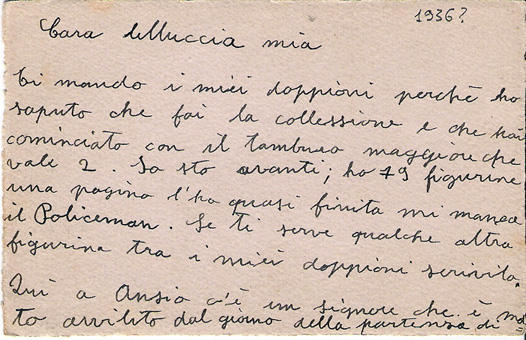 1936?
Cara Lelluccia mia
Ti mando i miei doppioni perchè ho
saputo che fai la collessione e che hai
cominciato con il tamburo maggiore che
vale 2. Io sto avanti; ho 79 figurine
una pagina l'ho quasi finita mi manca
il Policeman. Se ti serve qualche altra
figurina tra i miei doppioni scrivila.
Qui a Ansio c'è un signore che è mol=
to avvilito dal giorno della partenza di